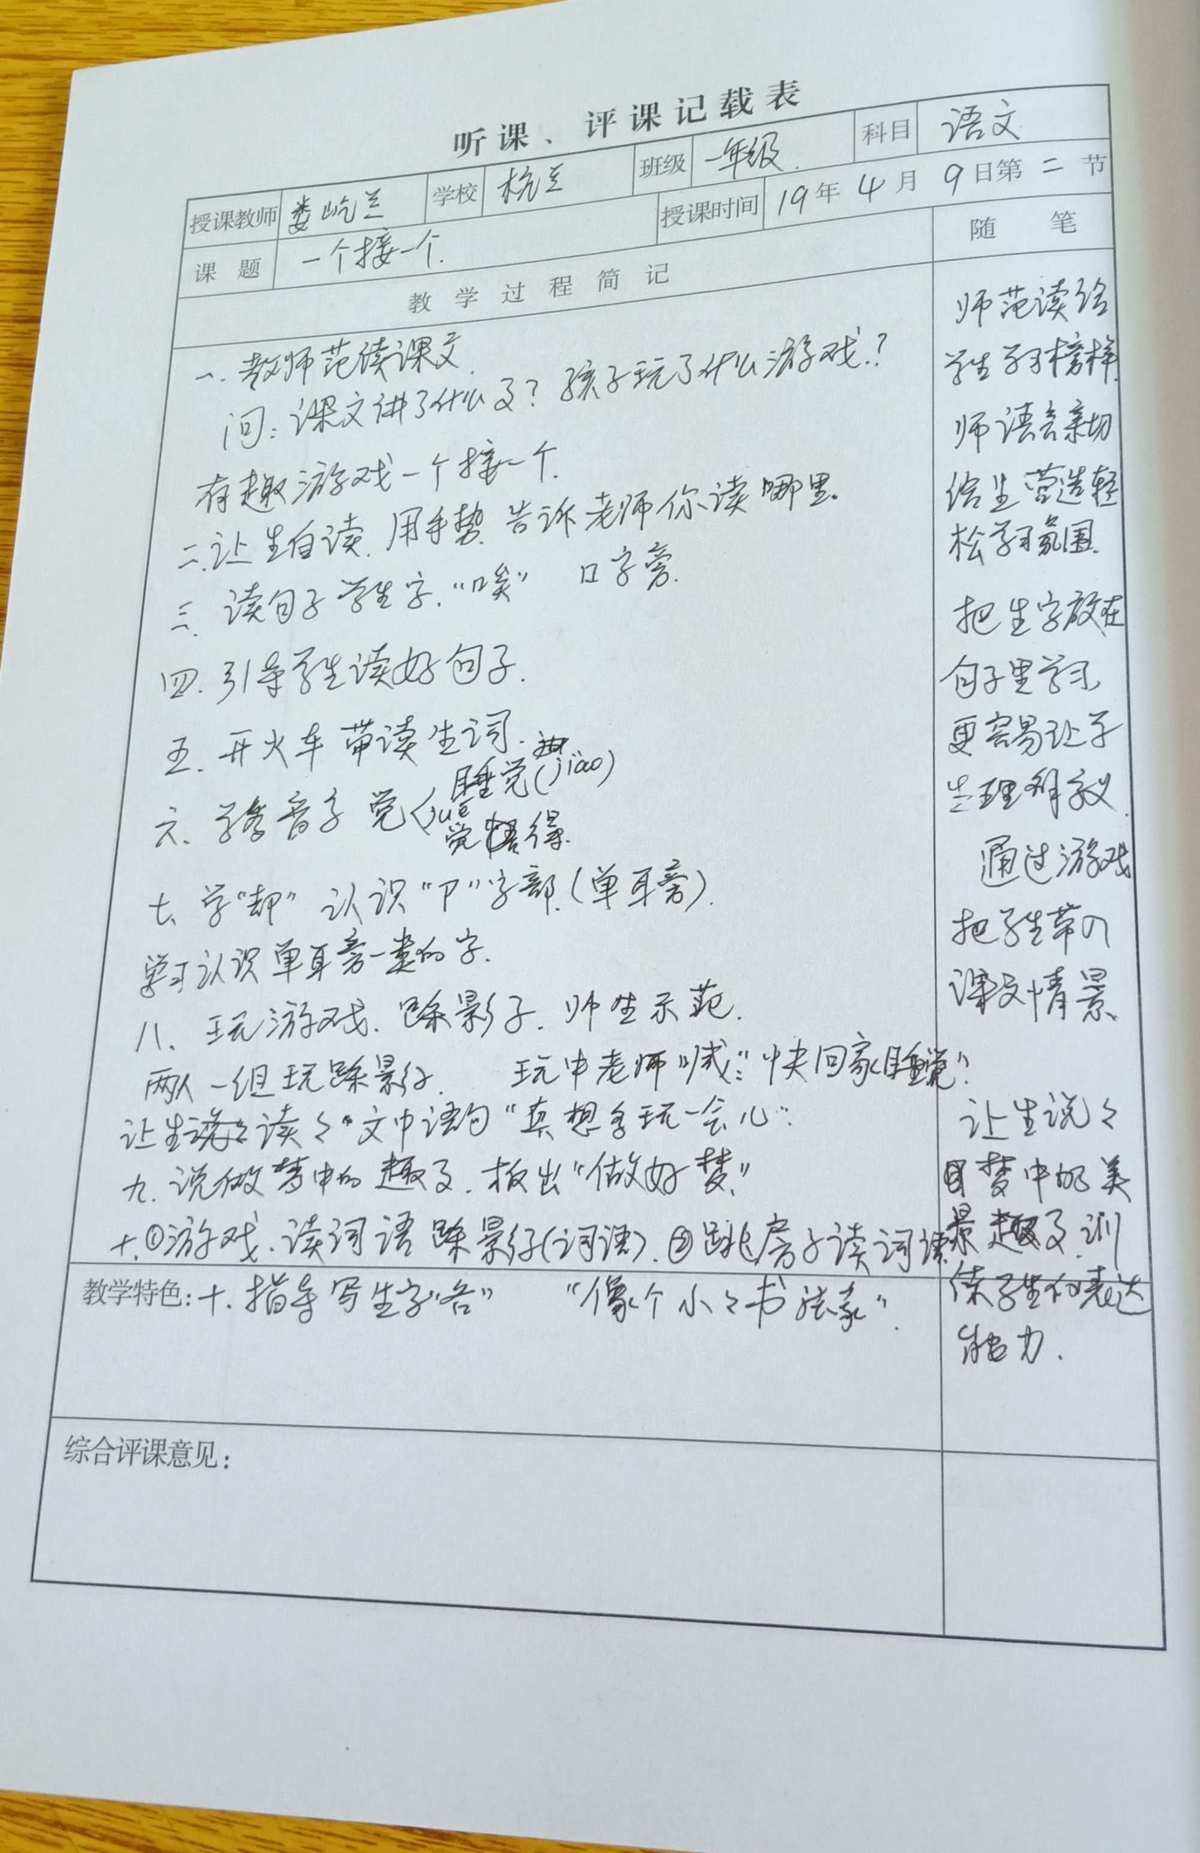 听课、评课记载表
授课教师 娄屹兰 学校 杭兰 班级 一年级. 科目 语文
课题 一个接一个. 授课时间 19年4月9日第二节
教学过程简记
随笔
一.教师范读课文.
问:课文讲了什么了?孩子玩了什么游戏?
有趣游戏一个接一个.
二.让生自读.用手势告诉老师你读哪里。
三.读句子学生字."唉" 口字旁.
四.引导学生读好句子.
五.开火车带读生词.
六.学多音字 觉 睡觉(jiào)
jué 觉得.
七.学"却" 认识"卩"字部.(单耳旁).
学习认识单耳旁一类的字.
八.玩游戏.踩影子.师生示范.
两人一组玩踩影子. 玩中老师喊:"快回家睡觉"
让生说说读读文中语句"真想多玩一会儿".
九.说做梦中的趣事.板出"做好梦"
十.①游戏.读词语踩影子(词语).②跳房子读词语
教学特色:十.指导写生字"各" "像个小小书法家".
综合评课意见:
师范读给
学生学习榜样.
师语言亲切
给生营造轻
松学习氛围.
把生字放在
句子里学习,
更容易让学
生理解字义.
通过游戏
把学生带入
课文情景.
让生说说
梦中的美
景趣事.训
练学生的表达
能力.